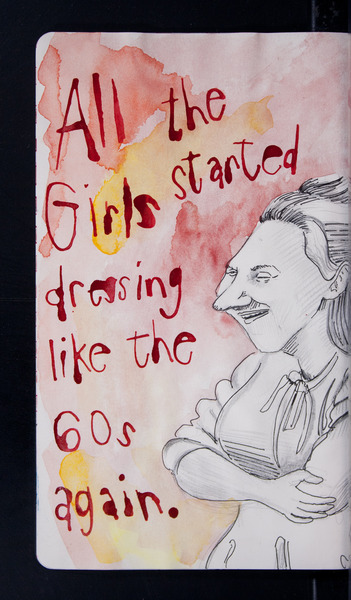 All the
Girls started
dressing
like the
60s
again.